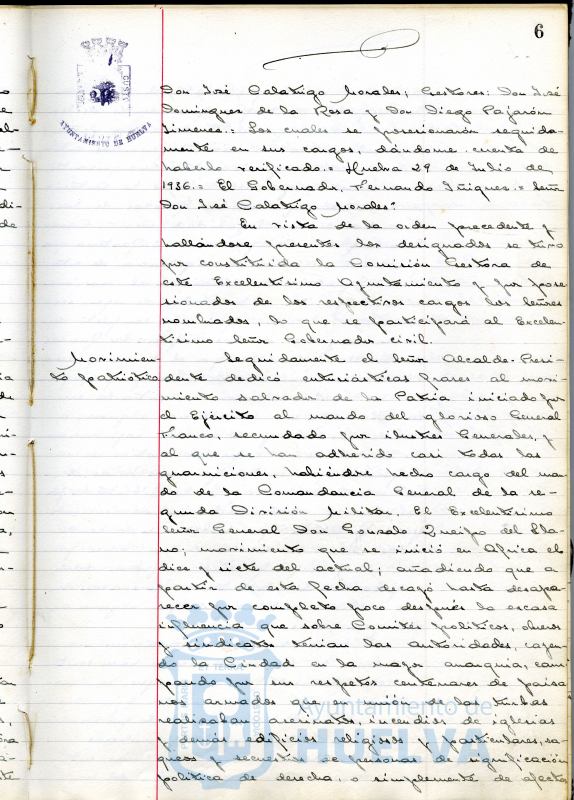 6
AYUNTAMIENTO DE HUELVA
Don José Calatrigo Morales; Gestores: Don José
Dominguez de la Rosa y Don Diego Pajarón
Jimenez.= Los cuales se posesionarón seguida-
mente en sus cargos, dándome cuenta de
haberlo verificado.= Huelva 29 de Julio de
1936.= El Gobernador, Fernando Iñiguez.= Señor
Don José Calatrigo Morales".
En vista de la orden precedente y
hallándose presentes los designados se tuvo
por constituida la Comisión Gestora de
este Excelentisimo Ayuntamiento y por pose-
sionados de los respectivos cargos los señores
nombrados, lo que se participará al Excelen-
tisimo Señor Gobernador civil.
Movimien-
to patriótico
Seguidamente el Señor Alcalde-Presi-
dente dedicó entusiásticas frases al movi-
miento salvador de la Patria iniciado por
el Ejército al mando del glorioso General
Franco, secundado por ilustres Generales, y
al que se han adherido casi todas las
guarniciones, habiéndose hecho cargo del man-
do de la Comandancia General de la se-
gunda División Militar, El Excelentisimo
Señor General Don Gonzalo Queipo del Lla-
no; movimiento que se inició en Africa el
diez y siete del actual; añadiendo que a
partir de esta fecha decayó hasta desapa-
recer por completo poco después la escasa
influencia que sobre Comites politicos, obreros
y sindicatos tenian las autoridades, cayen-
do la Ciudad en la mayor anarquia, cam-
pando por sus respetos centenares de paisa-
nos armados que en unión de las turbas
realizaban asesinatos, incendios de iglesias
y demás edificios religiosos y particulares, sa-
queos y secuestros de personas de significación
politica de derecha, o simplemente de afecta
Ayuntamiento de
HUELVA